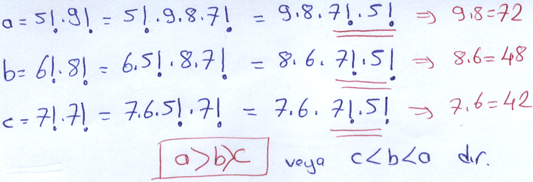 a = 5!.9! = 5!.9.8.7! = 9.8.7!.5! ⇒ 9.8=72
b = 6!.8! = 6.5!.8.7! = 8.6.7!.5! ⇒ 8.6=48
c = 7!.7! = 7.6.5!.7! = 7.6.7!.5! ⇒ 7.6=42
a>b>c veya c<b<a dır.